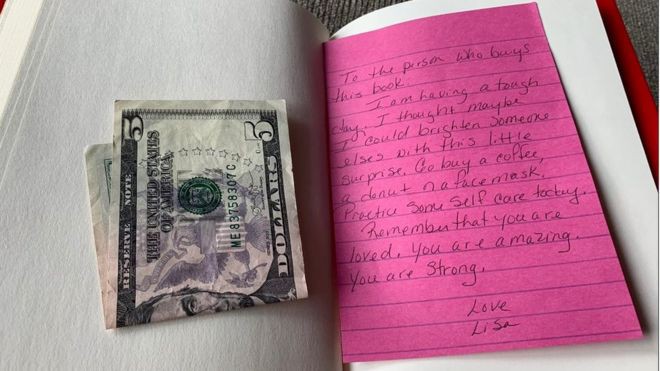 5
5
RESERVE NOTE
THE UNITED STATES
OF AMERICA
ME83758307C
DOLLARS
To the person who buys
this book:
I am having a tough
day. I thought maybe
I could brighten someone
elses with this little
surprise. Go buy a coffee,
a donut or a face mask.
Practice some self care today.
Remember that you are
loved. You are amazing.
You are strong.
Love
Lisa